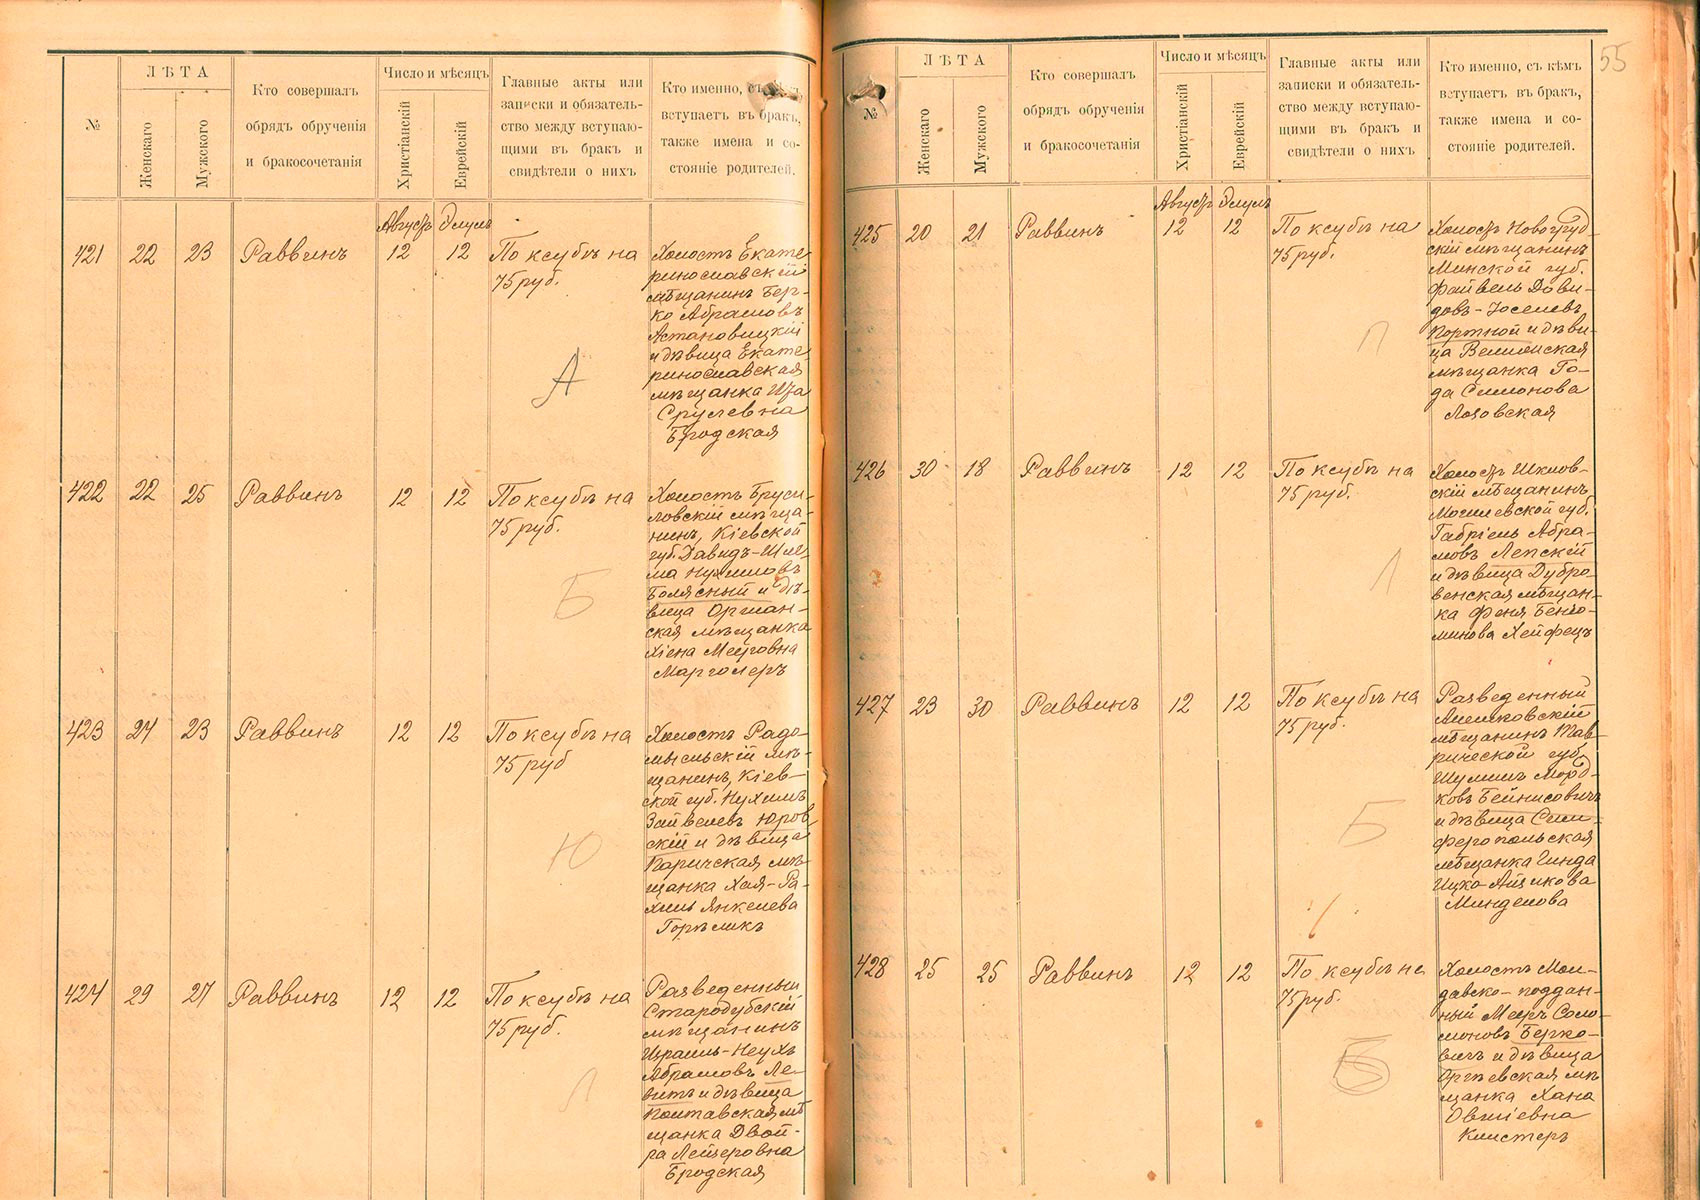 №
ЛѢТА
Женскаго
Мужского
Кто совершалъ
обрядъ обрученія
и бракосочетанія
Число и мѣсяцъ
Христіанскій
Еврейскій
Главные акты или
записки и обязатель-
ство между вступаю-
щими въ бракъ и
свидѣтели о нихъ
Кто именно, съ
вступаетъ въ бракъ,
также имена и со-
стояніе родителей.
Августъ Элулъ
421 22 23 Раввинъ 12 12
По ксубѣ на
75 руб.
А
Холостъ Екате
ринославскій
мѣщанинъ Бер-
ко Абрамовъ
Астановицкій
и дѣвица Екате
ринославская
мѣщанка Иза
Срулевна
Бродская
422 22 25 Раввинъ 12 12
По ксубѣ на
75 руб.
Б
Холостъ Бруси-
ловскій мѣща-
нинъ, Кіевской
губ. Давидъ-Шле
ма Нухимовъ
Болясный и дѣ-
вица Оргіан-
ская мѣщанка
Хіена Меировна
Марголеръ
423 24 23 Раввинъ 12 12
По ксубѣ на
75 руб
Ю
Холостъ Радо-
мысльскій мѣ-
щанинъ, Кіев-
ской губ. Нухимъ
Зайвелевъ Юров
скій и дѣвица
Паричская мѣ-
щанка Хая-Ра-
хиль Янкелева
Горѣликъ
424 29 27 Раввинъ 12 12
По ксубѣ на
75 руб.
Л
Разведенный
Стародубскій
мѣщанинъ
Израиль-Неухъ
Абрамовъ Ле-
витъ и дѣвица
Полтавская мѣ
щанка Двой-
ра Лейзеровна
Бродская
55
№
ЛѢТА
Женскаго
Мужского
Кто совершалъ
обрядъ обрученія
и бракосочетанія
Число и мѣсяцъ
Христіанскій
Еврейскій
Главные акты или
записки и обязатель-
ство между вступаю-
щими въ бракъ и
свидѣтели о нихъ
Кто именно, съ кѣмъ
вступаетъ въ бракъ,
также имена и со-
стояніе родителей.
Августъ Элулъ
425 20 21 Раввинъ 12 12
По ксубѣ на
75 руб.
П
Холостъ Новогруд-
скій мѣщанинъ
Минской губ.
Файвель Дови-
довъ-Іоселевъ
Портной и дѣви-
ца Велионская
мѣщанка Го-
да Симонова
Лозовская
426 30 18 Раввинъ 12 12
По ксубѣ на
75 руб.
Л
Холостъ Шклов-
скій мѣщанинъ
Могилевской губ.
Габріель Абра-
мовъ Лепскій
и дѣвица Дубро-
венская мѣщан-
ка Феня Беню-
минова Хейфецъ
427 23 30 Раввинъ 12 12
По ксубѣ на
75 руб.
Б
Разведенный
Алешковскій
мѣщанинъ Тав-
рической губ.
Шулимъ Морд-
ковъ Бейнисовичъ
и дѣвица Сим-
феропольская
мѣщанка Гинда
Ицко-Айзикова
Минделова
428 25 25 Раввинъ 12 12
По ксубѣ на
75 руб.
Б
Холостъ Мол-
давско-поддан-
ный Меиръ Соло-
моновъ Берко-
вичъ и дѣвица
Оргѣевская мѣ
щанка Хана
Овшіевна
Клистеръ